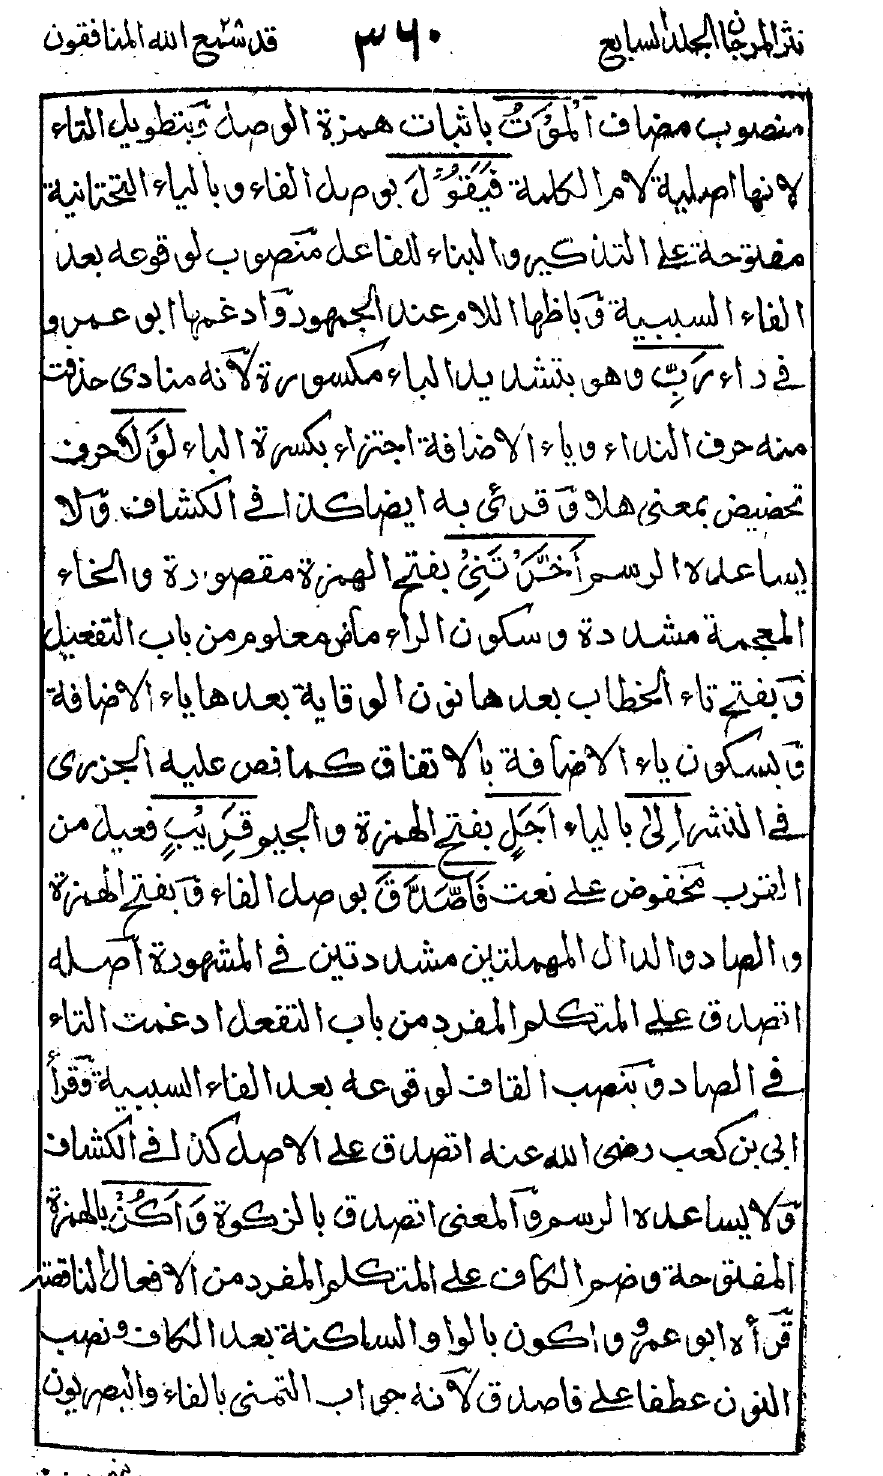 نثر المرجان الجلد السابع ٣٦٠ قد سمع الله المنافقون
منصوب مضاف الْمَوْتُ باثبات همزة الوصل وبتطويل التاء
لانها اصلية لام الكلمة فَيَقُوْلَ بوصل الفاء وبالياء التحتانية
مفتوحة على التذكير والبناء للفاعل منصوب لوقوعه بعد
الفاء السببية وباظهار اللام عند الجمهور وادغمها ابو عمرو
في راء رَبِّ وهو بتشديد الباء مكسورة لانه منادى حذفت
منه حرف النداء وياء الاضافة اجتزاء بكسرة الباء لَوْلَا حرف
تحضيض بمعنى هلا وقرئ به ايضا كذا في الكشاف ولا
يساعده الرسم أَخَّرْتَنِيْ بفتح الهمزة مقصورة والخاء
المعجمة مشددة وسكون الراء ماض معلوم من باب التفعيل
وبفتح تاء الخطاب بعدها نون الوقاية بعدها ياء الاضافة
وبسكون ياء الاضافة بالاتفاق كما نص عليه الجزرى
في النشر اِلىٰ بالياء اَجَلٍ بفتح الهمزة والجيم قَرِيْبٍ فعيل من
القرب مخفوض على نعت فَاَصَّدَّقَ بوصل الفاء وبفتح الهمزة
والصاد والدال المهملتين مشددتين في المشهورة اصله
اتصدق على المتكلم المفرد من باب التفعل ادغمت التاء
في الصاد وبنصب القاف لوقوعه بعد الفاء السببية وقرأ
ابى بن كعب رضى الله عنه اتصدق على الاصل كذا في الكشاف
ولا يساعده الرسم والمعنى اتصدق بالزكوة وَاَكُنْ بالهمزة
المفتوحة وضم الكاف على المتكلم المفرد من الافعال الناقصة
قرأه ابو عمرو واكون بالواو الساكنة بعد الكاف ونصب
النون عطفا على فاصدق لانه جواب التمنى بالفاء والبصريون